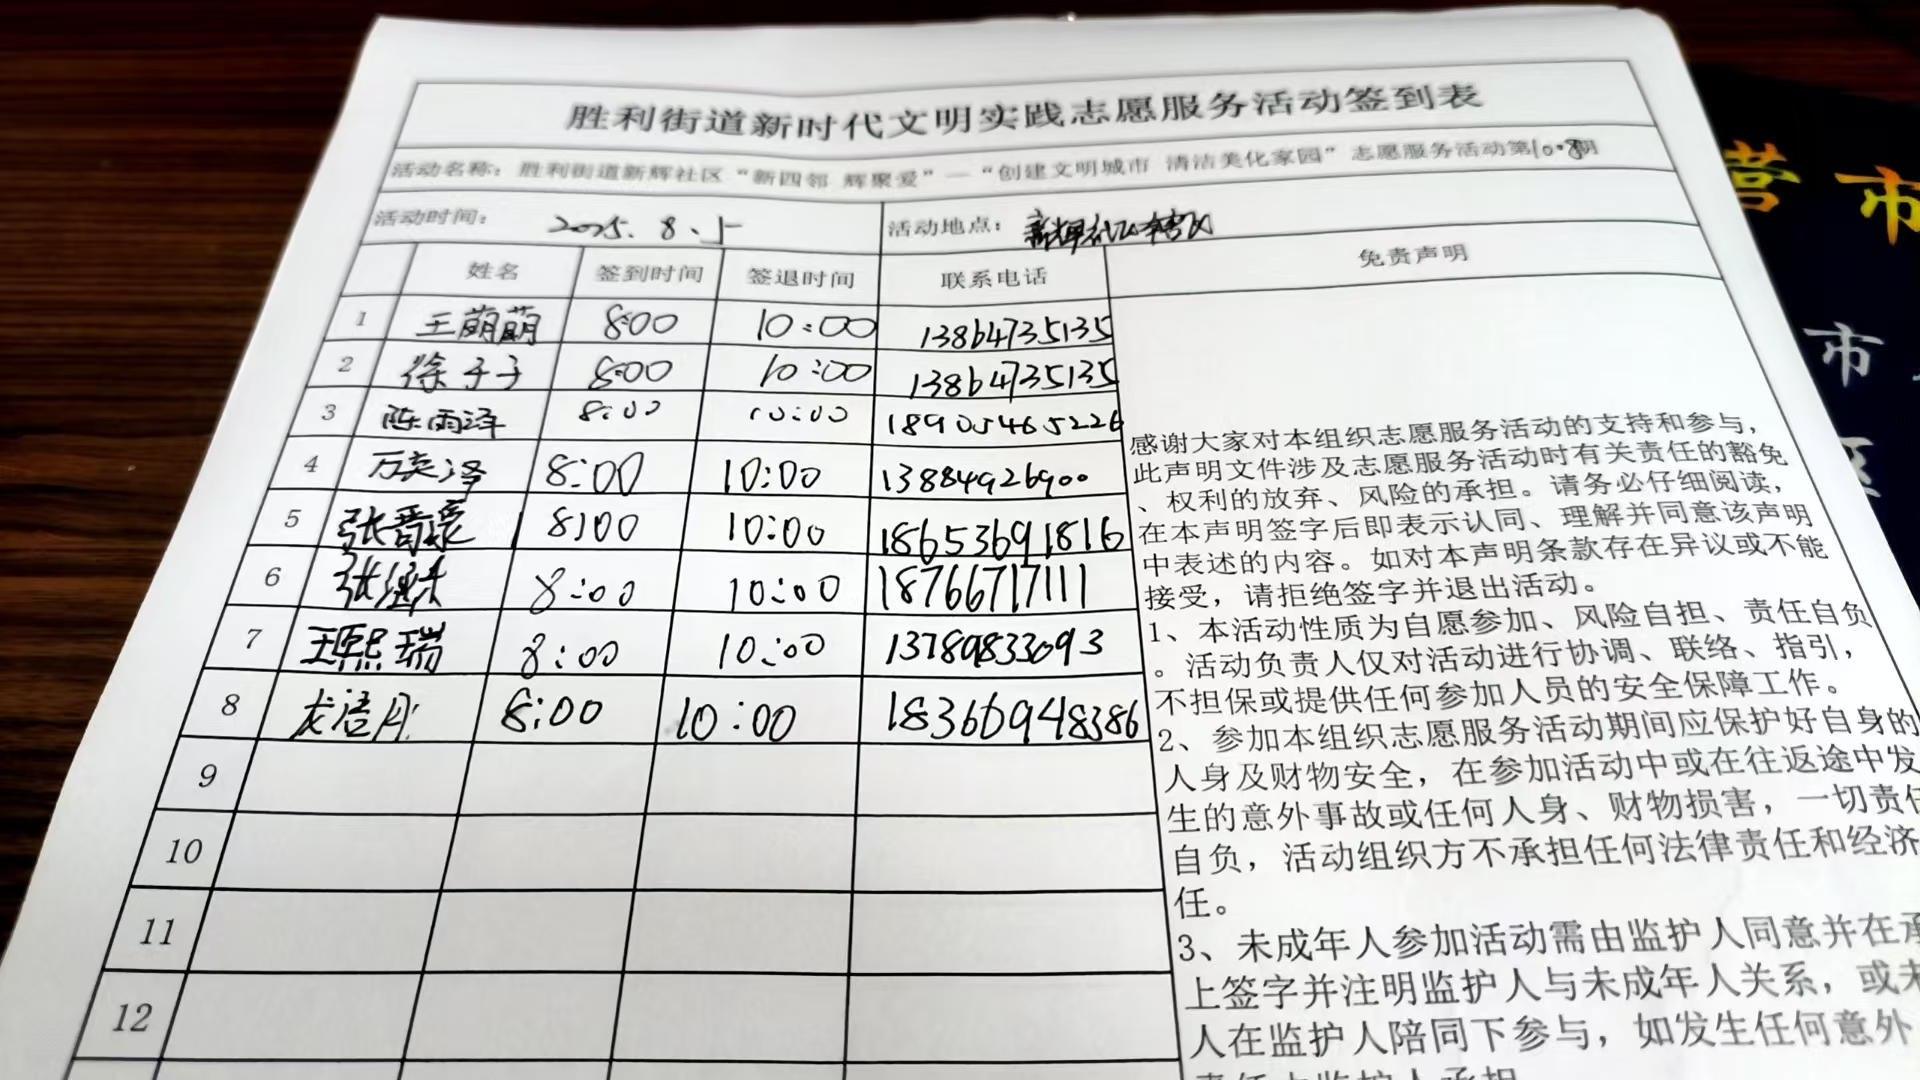 胜利街道新时代文明实践志愿服务活动签到表
活动名称：胜利街道新辉社区“新四邻 辉聚爱”—“创建文明城市 清洁美化家园”志愿服务活动第108期
活动时间： 2025.8.5 活动地点：新辉社区辖区
姓名 签到时间 签退时间 联系电话 免责声明
1 王萌萌 8:00 10:00 13864735135
2 徐子子 8:00 10:00 13864735135
3 陈雨泽 8:00 10:00 189054465226
4 万奕泽 8:00 10:00 13884926900
5 张晋 8:00 10:00 18653691816
6 张 8:00 10:00 18766717111
7 王熙瑞 8:00 10:00 13789833093
8 龙语月 8:00 10:00 18366948386
9
10
11
12
感谢大家对本组织志愿服务活动的支持和参与，
此声明文件涉及志愿服务活动时有关责任的豁免
、权利的放弃、风险的承担。请务必仔细阅读，
在本声明签字后即表示认同、理解并同意该声明
中表述的内容。如对本声明条款存在异议或不能
接受，请拒绝签字并退出活动。
1、本活动性质为自愿参加、风险自担、责任自负
。活动负责人仅对活动进行协调、联络、指引，
不担保或提供任何参加人员的安全保障工作。
2、参加本组织志愿服务活动期间应保护好自身的
人身及财物安全，在参加活动中或在往返途中发
生的意外事故或任何人身、财物损害，一切责任
自负，活动组织方不承担任何法律责任和经济
任。
3、未成年人参加活动需由监护人同意并在承
上签字并注明监护人与未成年人关系，或未
人在监护人陪同下参与，如发生任何意外
责任由监护人承担
营市
市